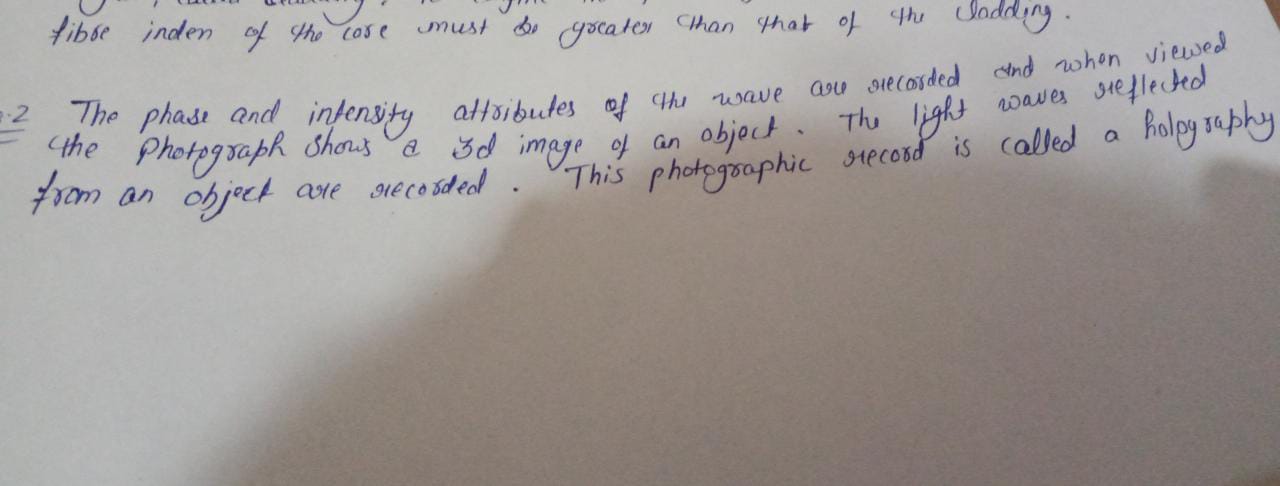 fibre inden of the core must be greater than that of the cladding.
.2 The phase and intensity attributes of the wave are recorded and when viewed
the photograph shows a 3d image of an object. The light waves reflected
from an object are recorded. This photographic record is called a holpgraphy